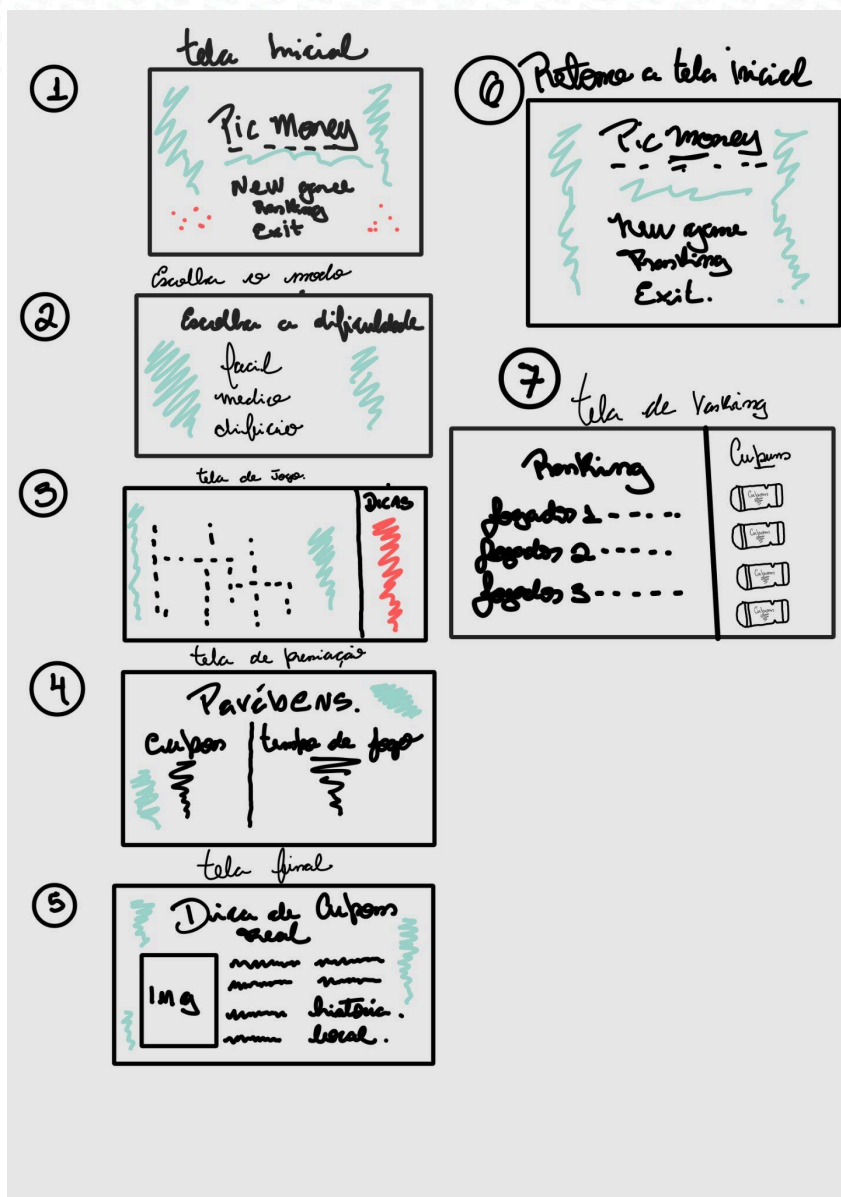 1
tela Inicial
Pic Money
New game
Ranking
Exit
2
Escolha o modo
Escolha a dificuldade
facil
medio
dificio
3
tela de Jogo.
DICAS
4
tela de premiação
Parábens.
Cupons
tempo de jogo
5
tela final
Dica de Cupons
real
Img
história.
local.
6
Retorne a tela inicial
Pic money
New game
Ranking
Exit.
7
tela de Ranking
Ranking
Jogador 1
Jogador 2
Jogador 3
Cupuns
Cupuns
Cupuns
Cupuns
Cupuns